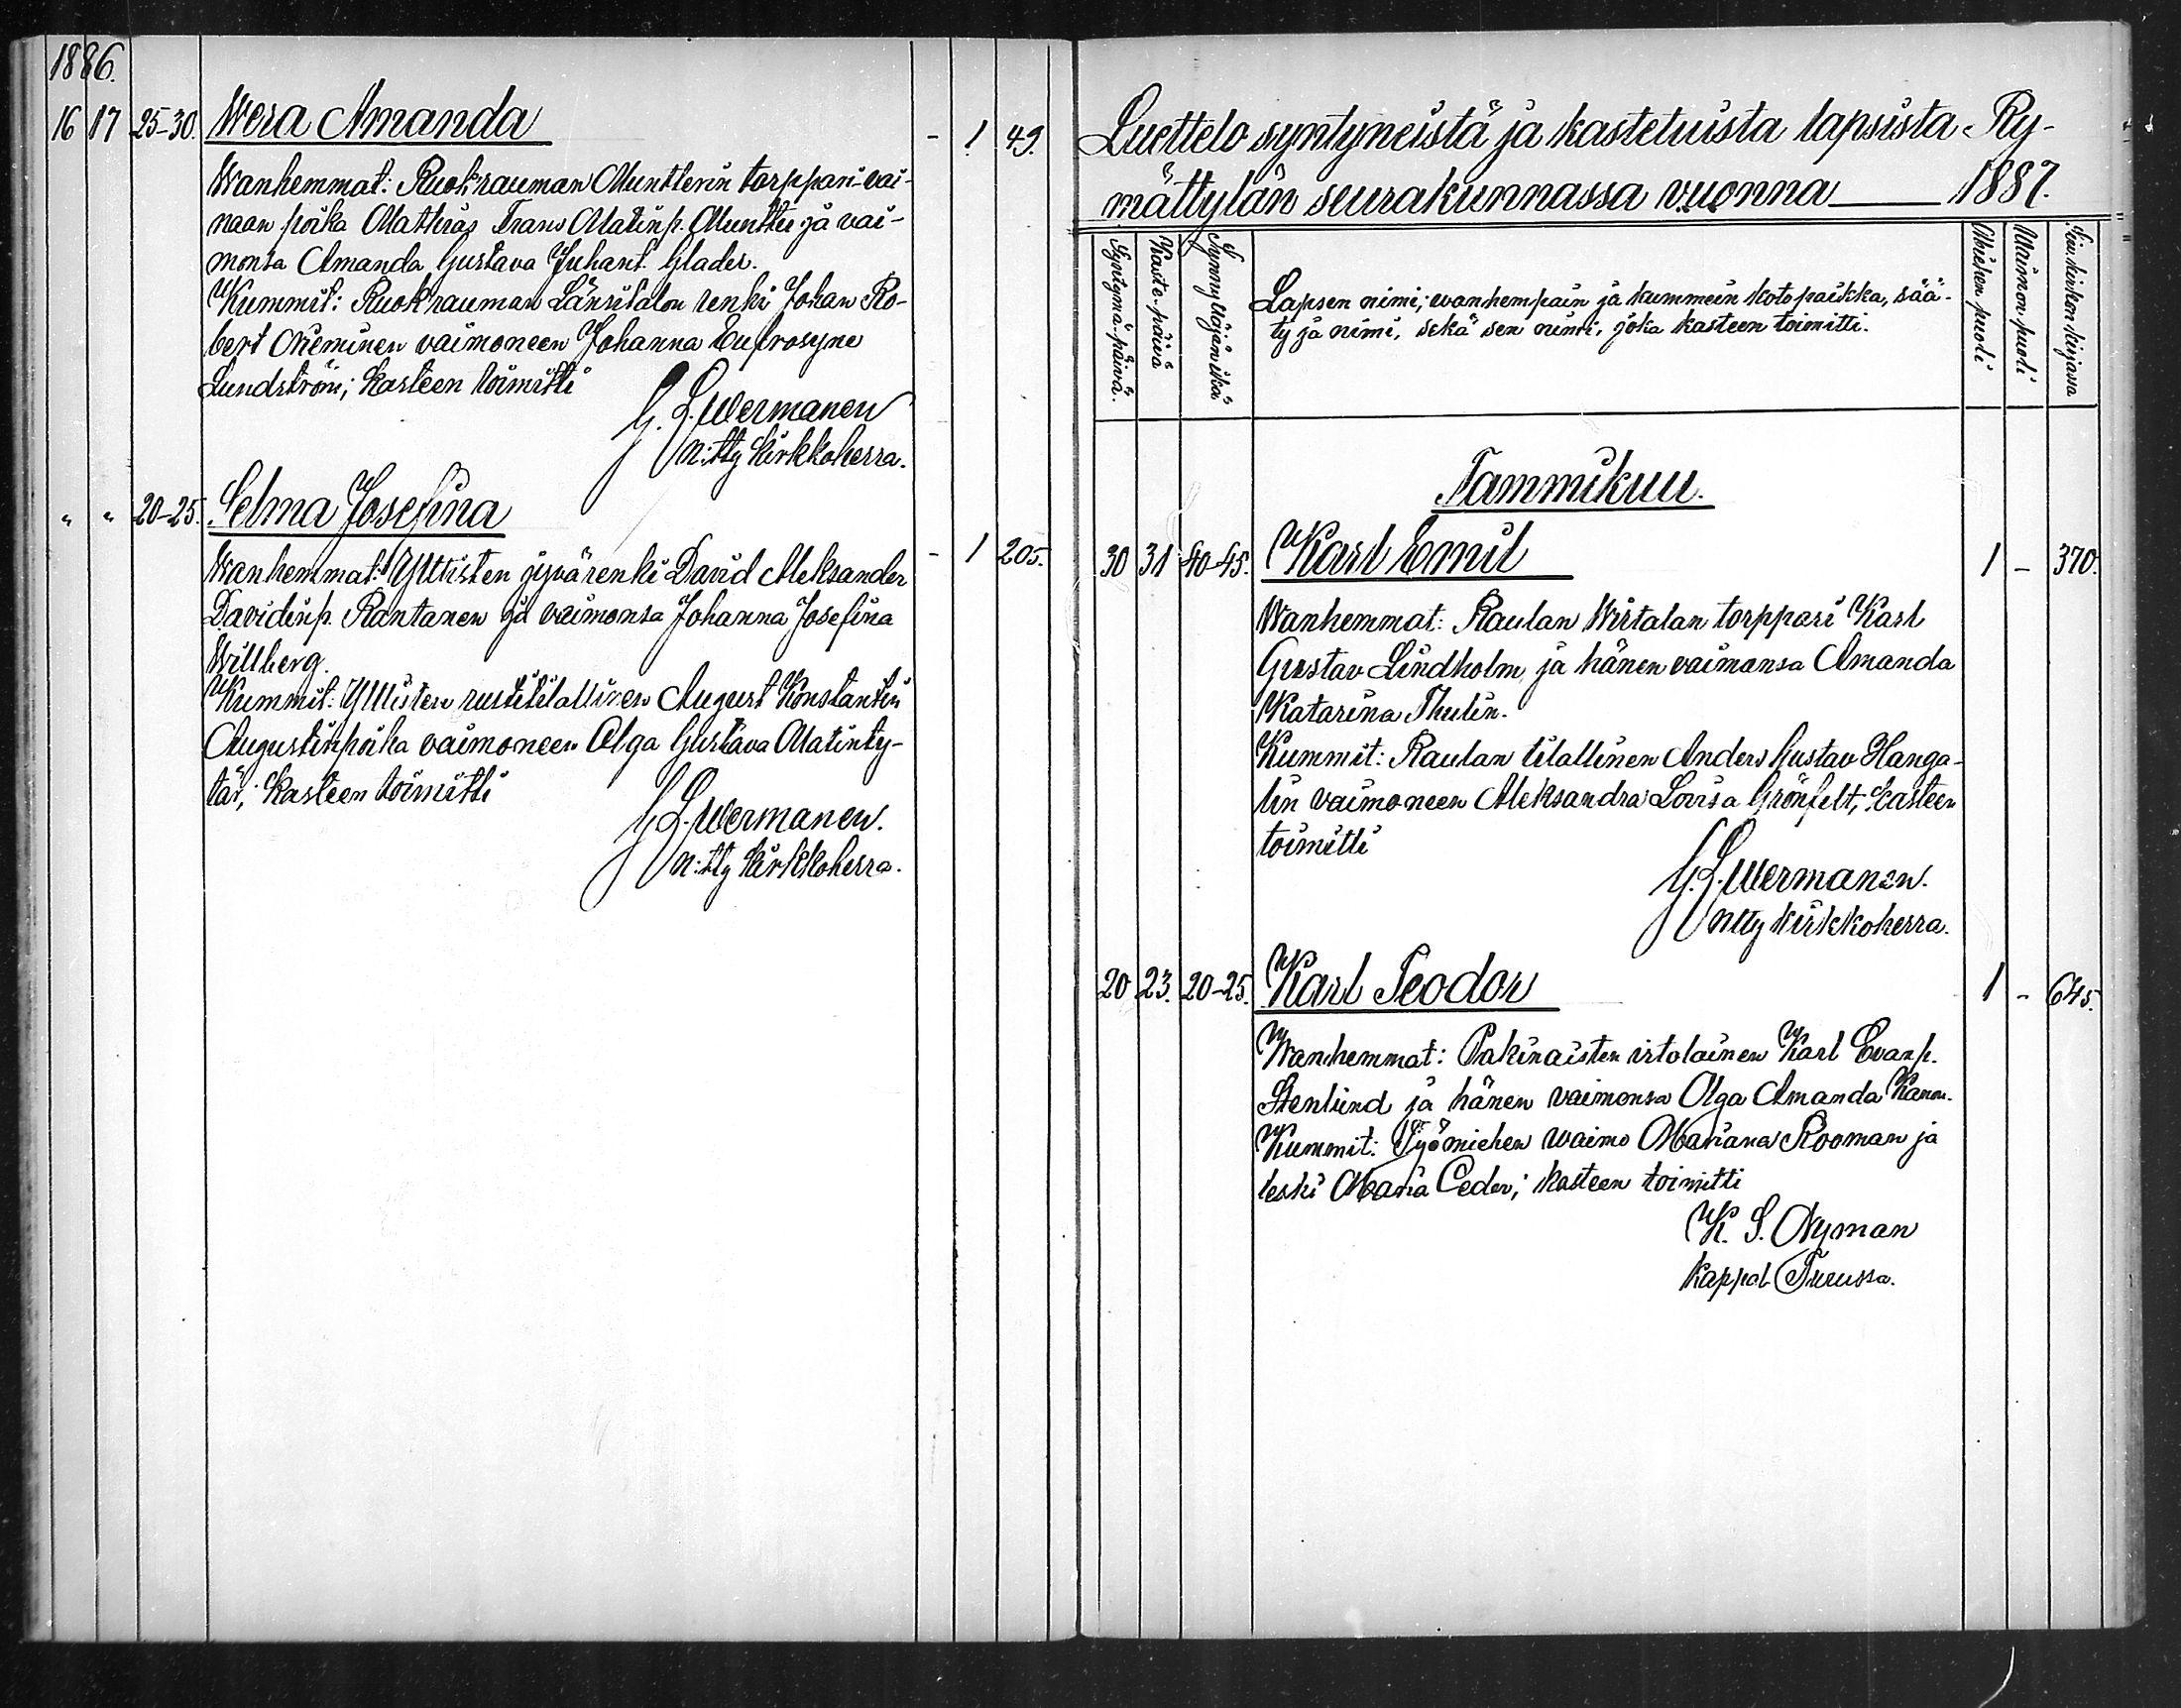 1886.
16 17 25-30. Wera Amanda - 1 49.
Wanhemmat: Ruokrauman Muntterin torppari-vai-
naan poika Mathias Frans Matinp. Munttu ja vai-
monsa Amanda Gustava Juhant. Glader.
Kummit: Ruokrauman Länsitalon renki Johan Ro-
bert Nieminen vaimoneen Johanna Eufrosyne
Lundström; kasteen toimitti
G. L. Wermanen
n:tty kirkkoherra.
" " 20-25. Selma Josefina - 1 205.
Wanhemmat: Yltisten jyvärenki David Aleksander
Davidinp. Rantanen ja vaimonsa Johanna Josefina
Willberg.
Kummit: Yltisten rustitilallinen August Konstantin
Augustinpoika vaimoneen Olga Gustava Matinty-
tär; kasteen toimitti
G. L. Wermanen.
n:tty kirkkoherra.
Luettelo syntyneistä ja kastetuista lapsista Ry-
mättylän seurakunnassa vuonna 1887.
Syntymä-päivä.
Kaste-päivä
Synnyttäjän ikä
Lapsen nimi; wanhempain ja kummein kotopaikka, sää-
ty ja nimi, sekä sen nimi, joka kasteen toimitti.
Miehen puoli
Waimon puoli
Siv. kirkon kirjassa
Tammikuu.
30 31 40-45. Karl Emil 1 - 370.
Wanhemmat: Raulan Wirtalan torppari Karl
Gustav Lindholm ja hänen vaimonsa Amanda
Katarina Thulin.
Kummit: Raulan tilallinen Anders Gustav Hanga-
lin vaimoneen Aleksandra Lovisa Grönfelt; kasteen
toimitti
G. L. Wermanen.
ntty kirkkoherra.
20 23. 20-25. Karl Teodor 1 - 645.
Wanhemmat: Pakinaisten irtolainen Karl Evanp.
Stenlund ja hänen vaimonsa Olga Amanda
Kummit: Työmiehen waimo Mariana Rooman ja
leski Maria Ceder; kasteen toimitti
K. S. Nyman
kappal Turussa.